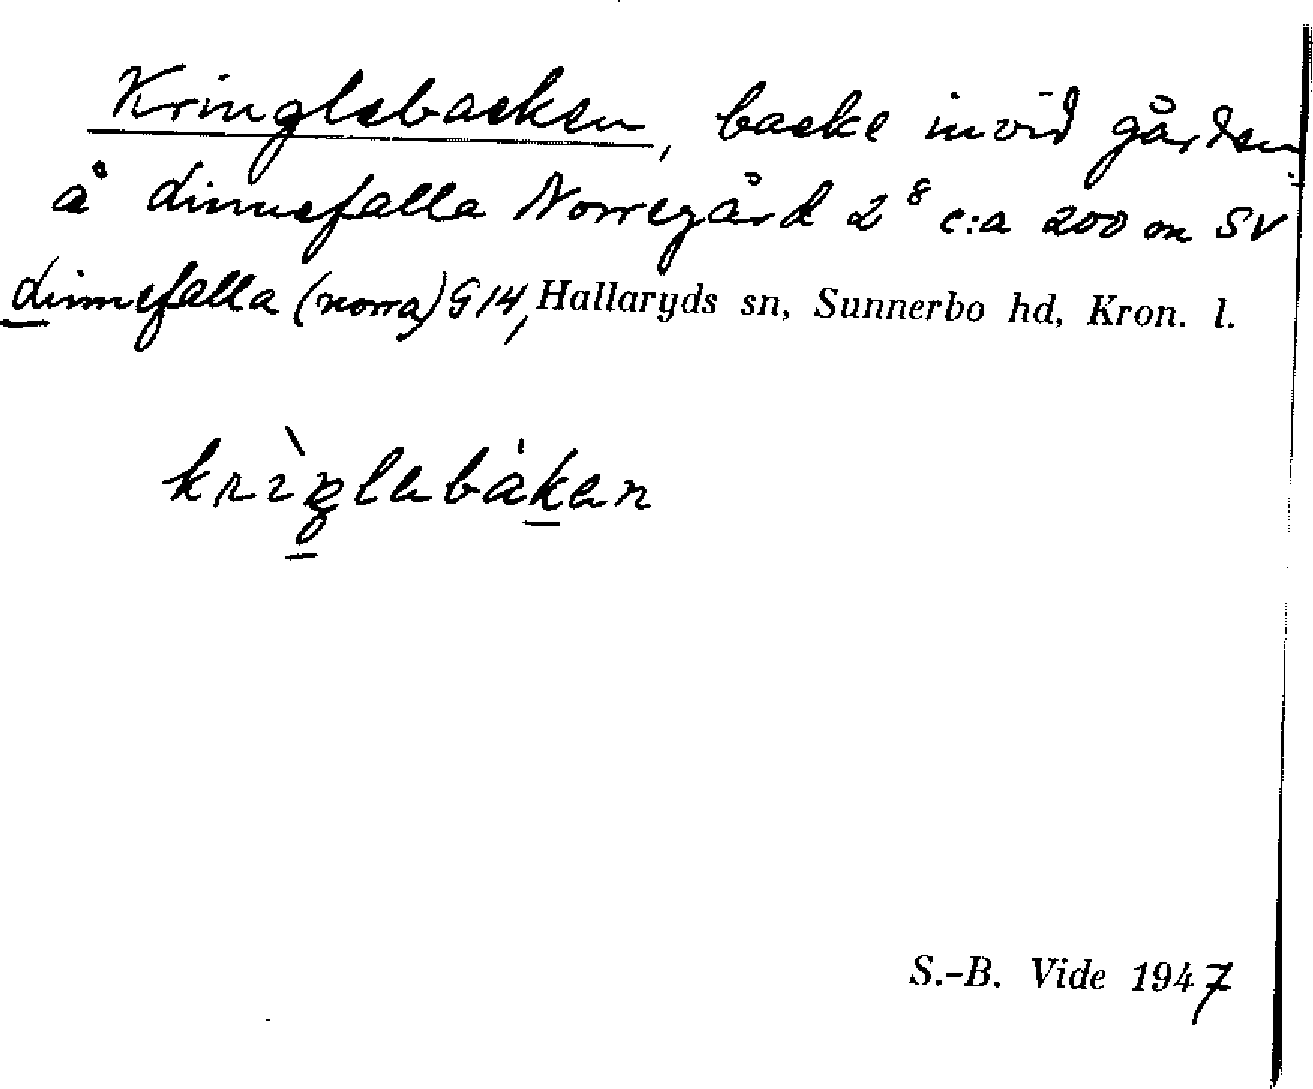 Kringlebacken, backe invid gården
å Linnefalla Norregård 2⁸ c:a 200 m SV
Linnefalla (norra) G14, Hallaryds sn, Sunnerbo hd, Kron. l.
krìŋlabákan
S.-B. Vide 1947